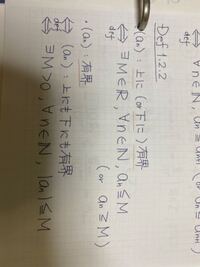 ⇔ ∀n∈ℕ, aₙ≦aₙ₊₁ (or aₙ≧aₙ₊₁)
def
Def 1.2.2
・(aₙ): 上に (or 下に) 有界
⇔ ∃M∈ℝ, ∀n∈ℕ, aₙ≦M
def
(or aₙ≧M)
・(aₙ): 有界
⇔ (aₙ): 上にも下にも有界
def
⇔ ∃M>0, ∀n∈ℕ, |aₙ|≦M